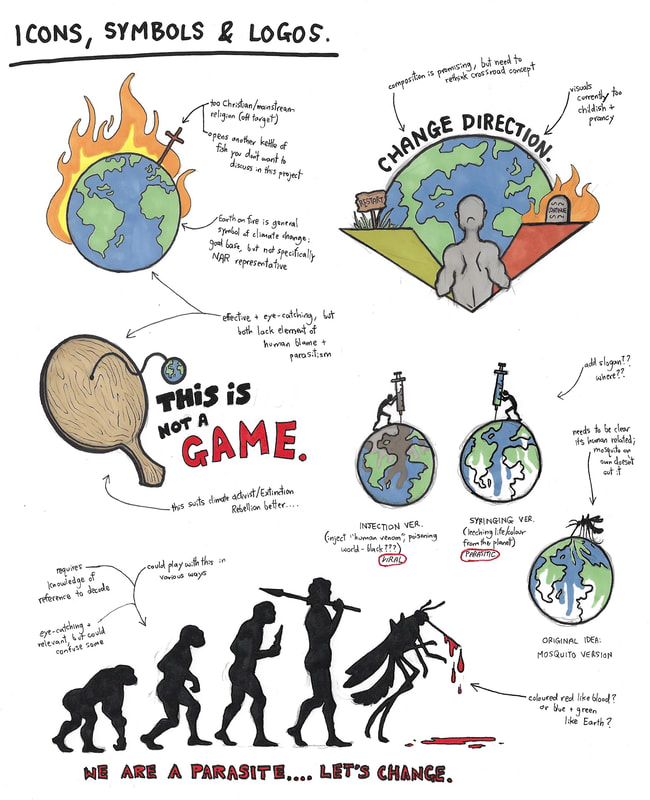 ICONS, SYMBOLS & LOGOS.
too Christian/mainstream
religion (off target)
opens another kettle of
fish you don't want to
discuss in this project
Earth on fire is general
symbol of climate change;
good base, but not specifically
NAR representative
effective + eye-catching, but
both lack element of
human blame +
parasitism
composition is promising, but need to
rethink crossroad concept
visuals
currently too
childish +
prancy
CHANGE DIRECTION.
RESTART
CONTINUE
THIS IS
NOT A
GAME.
this suits climate activist/Extinction
Rebellion better....
add slogan??
where??
needs to be clear
its human related;
mosquito on
own doesn't
cut it
INJECTION VER.
(inject "human venom", poisoning
world - black???)
VIRAL
SYRINGING VER.
(leeching life/colour
from the planet)
PARASITIC
ORIGINAL IDEA:
MOSQUITO VERSION
requires
knowledge of
reference to decode
could play with this in
various ways
eye-catching +
relevant, but could
confuse some
coloured red like blood?
or blue + green
like Earth?
WE ARE A PARASITE.... LET'S CHANGE.